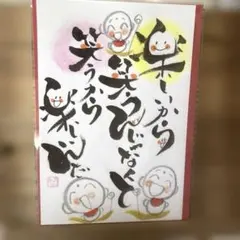 楽しいから
笑うんじゃなくて
笑うから
楽しいんだ